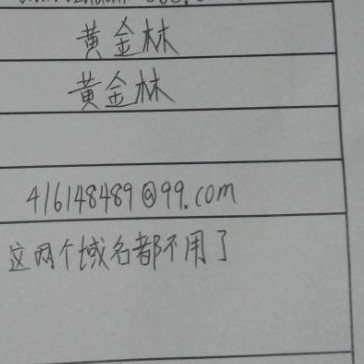 黄金林
黄金林
416148489@99.com
这两个域名都不用了